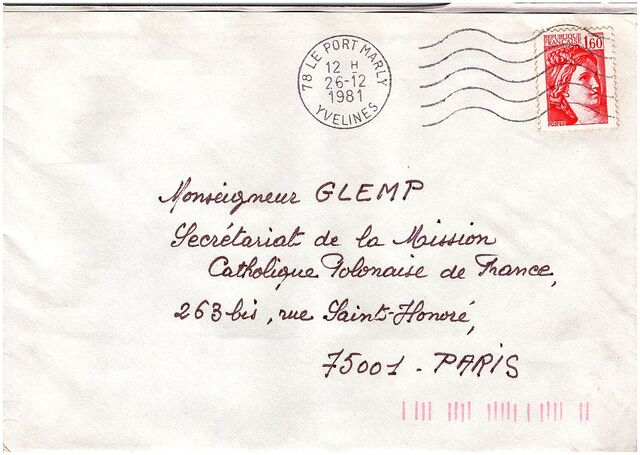 78 LE PORT MARLY
12 H
26-12
1981
YVELINES
REPUBLIQUE
FRANCAISE
1,60
POSTES
Monseigneur GLEMP
Secrétariat de la Mission
Catholique Polonaise de France,
263 bis, rue Saint-Honoré,
75001 - PARIS